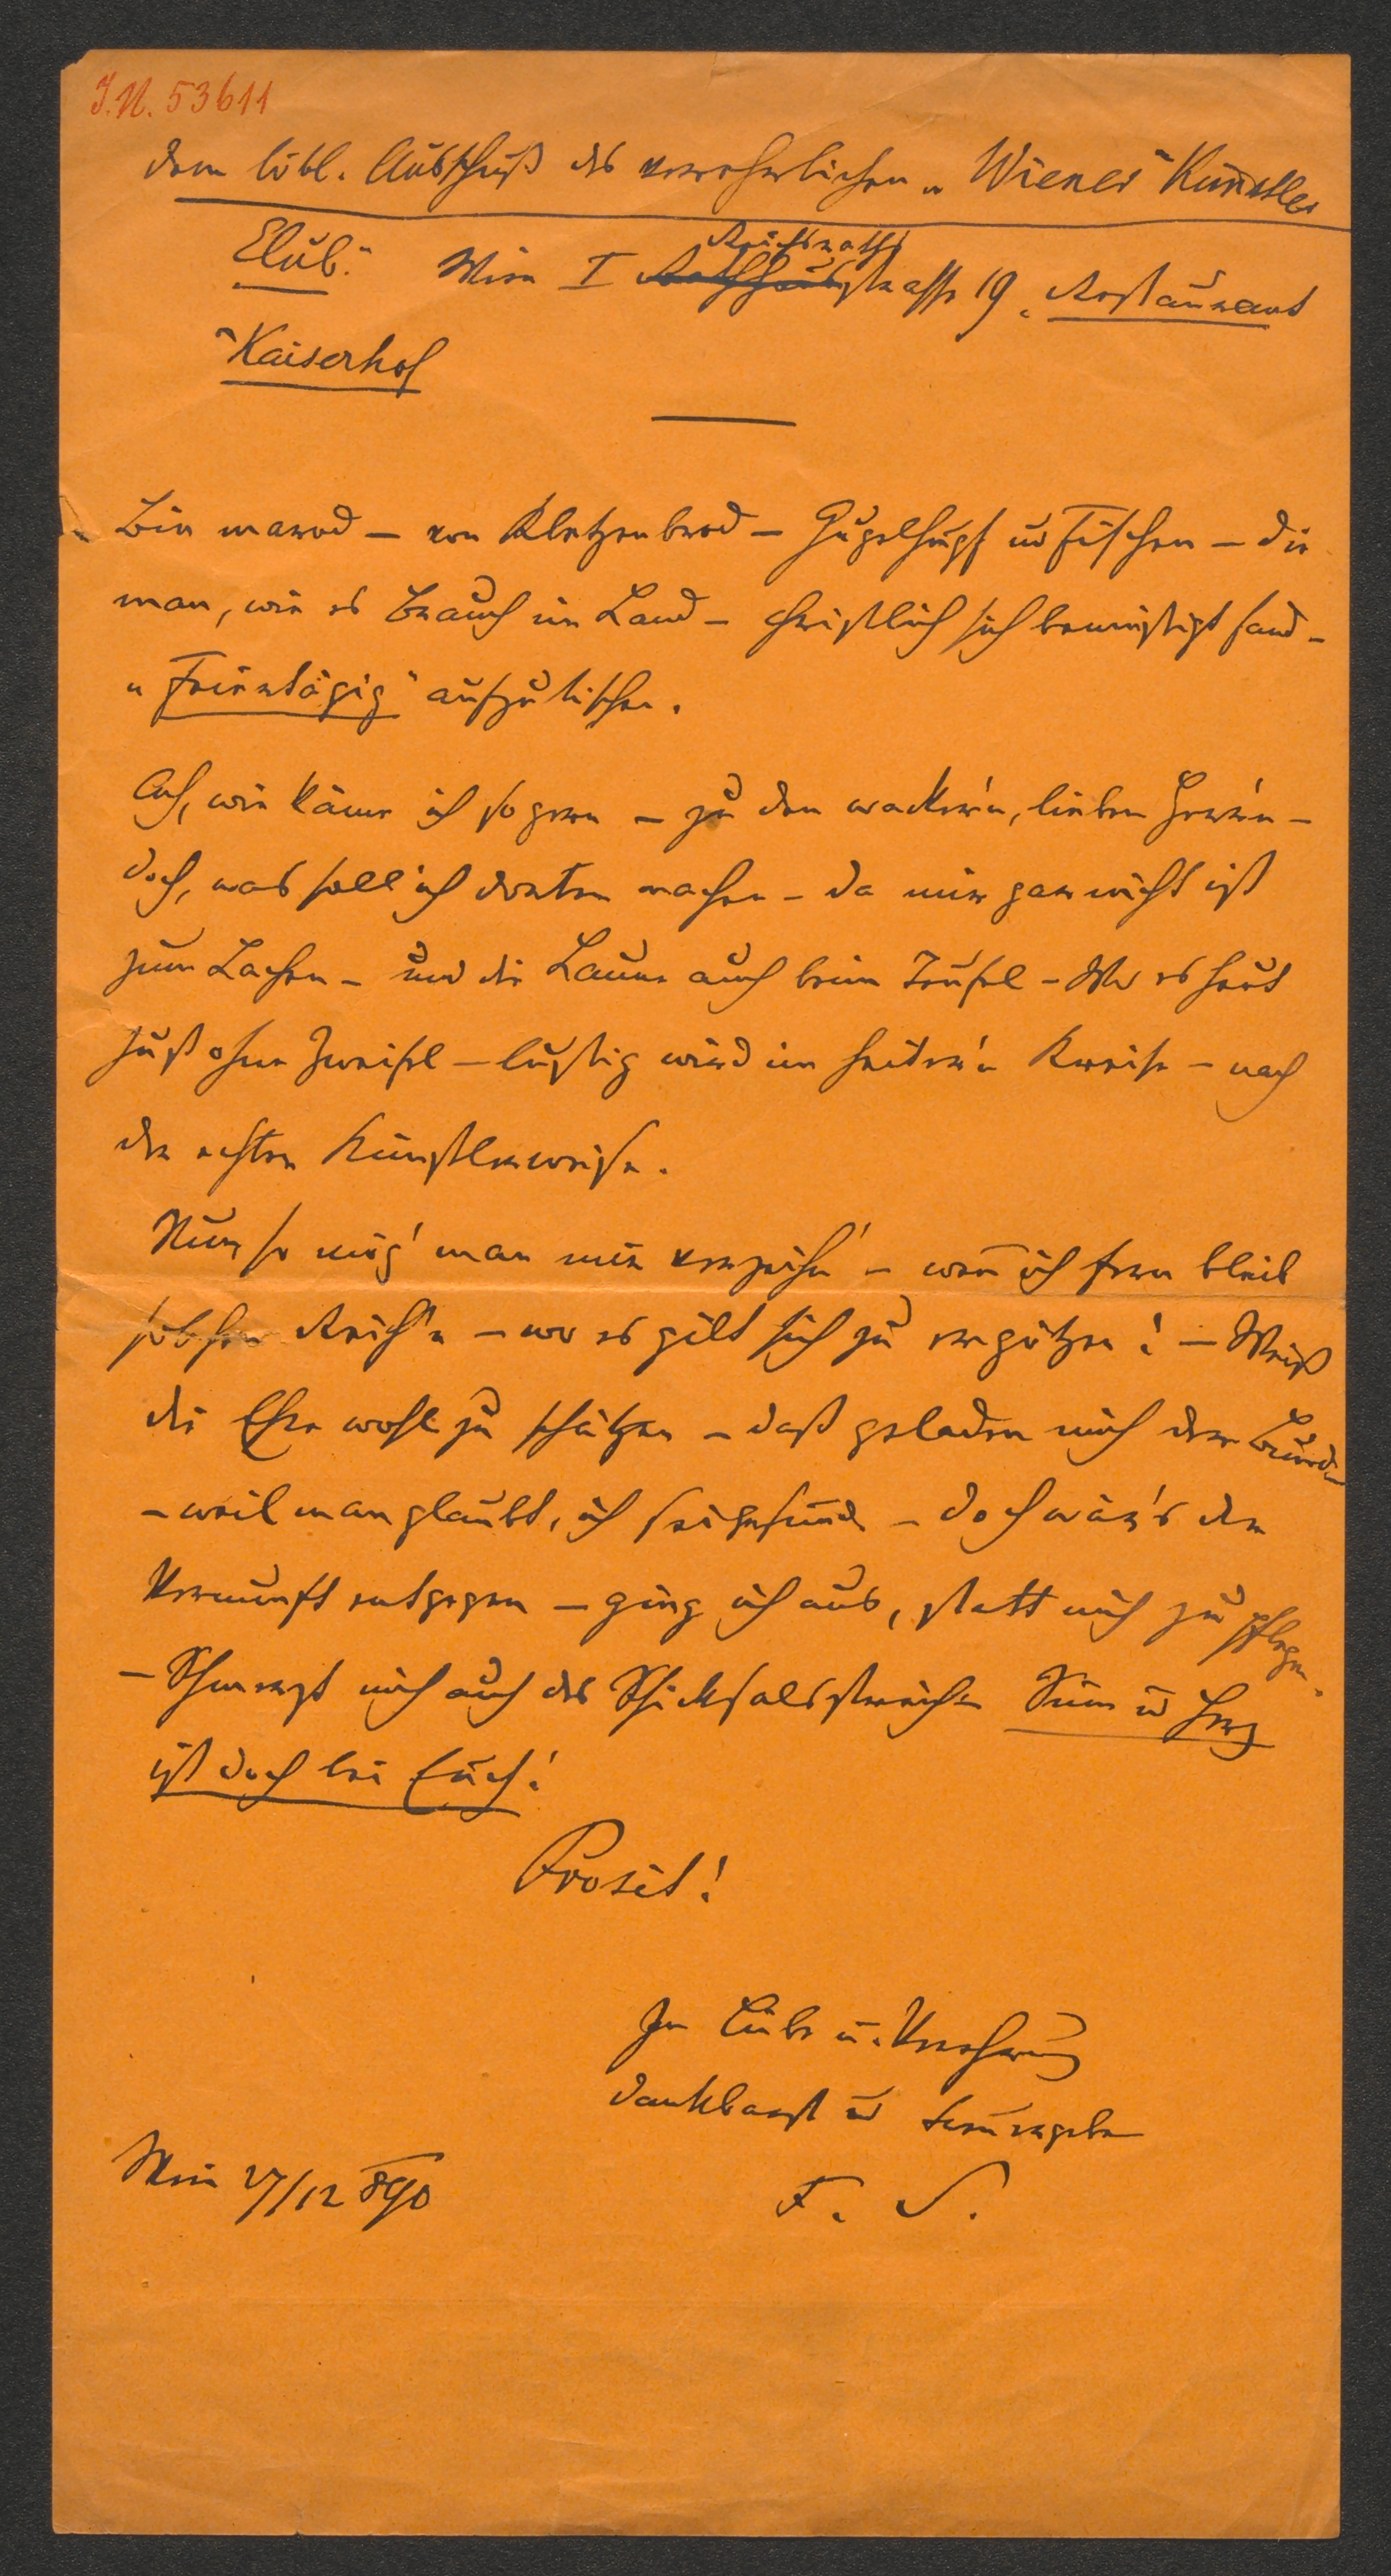 J.N. 53611
Dem löbl. Ausschuß des verehrlichen „Wiener Künstler
Club." Wien I Rathhausstrasse 19. Restaurant
Reichsraths
"Kaiserhof
Bin marod – von Kletzenbrod – Gugelhupf ud Fischen – die
man, wie es Brauch im Land – christlich sich bemüßigt fand –
„Feiertägig" aufzutischen.
Ach, wie käme ich so gern – zu den wacker'n, lieben Herrn –
doch, was soll ich dorten machen – da mir gar nicht ist
zum Lachen – und die Laune auch beim Teufel – Wo es heut
just ohne Zweifel – lustig wird im heiter'n Kreise – nach
der echten Künstlerweise.
Nun so mög' man mir verzeih'n – wenn ich fern bleib
solchen Reih'n – wo es gilt sich zu ergötzen! – Weiß
die Ehre wohl zu schätzen – daß geladen mich der Bund
– weil man glaubt, ich sei gesund – doch wär's der
Vernunft entgegen – ging ich aus, statt mich zu pflegen.
– Schmerzt mich auch des Schicksals streich – Sinn ud Herz
ist doch bei Euch!
Prosit!
In Liebe u. Verehrung
dankbarst ud treuergeben
Wien 27/12 890
F. S.